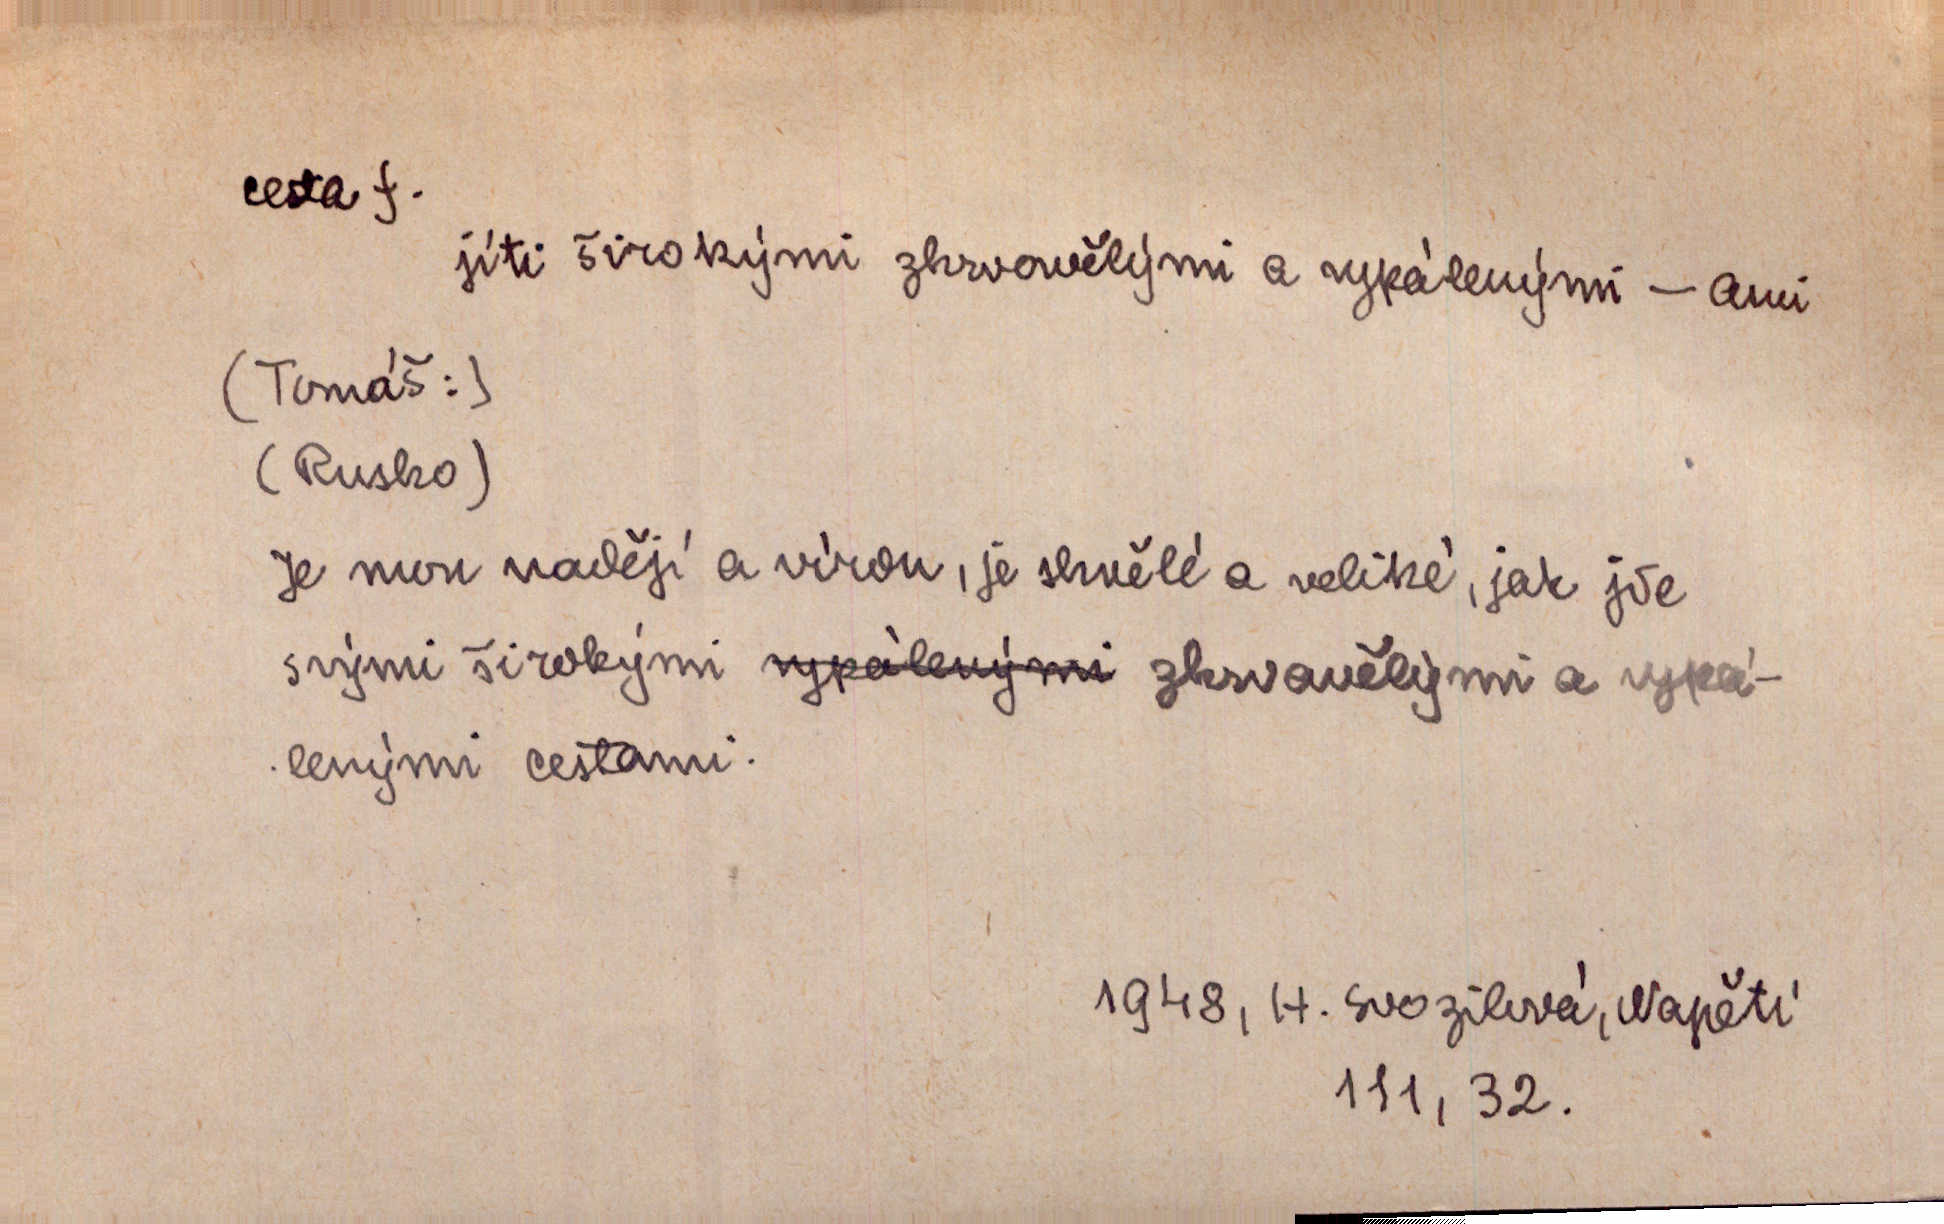 cesta f.
jíti širokými zkrvavělými a vypálenými – ami
(Tomáš:)
(Rusko)
Je mou nadějí a vírou, je skvělé a veliké, jak jde
svými širokými vypálenými zkrvavělými a vypá-
lenými cestami.
1948, H. Svozilová, Napětí
111, 32.